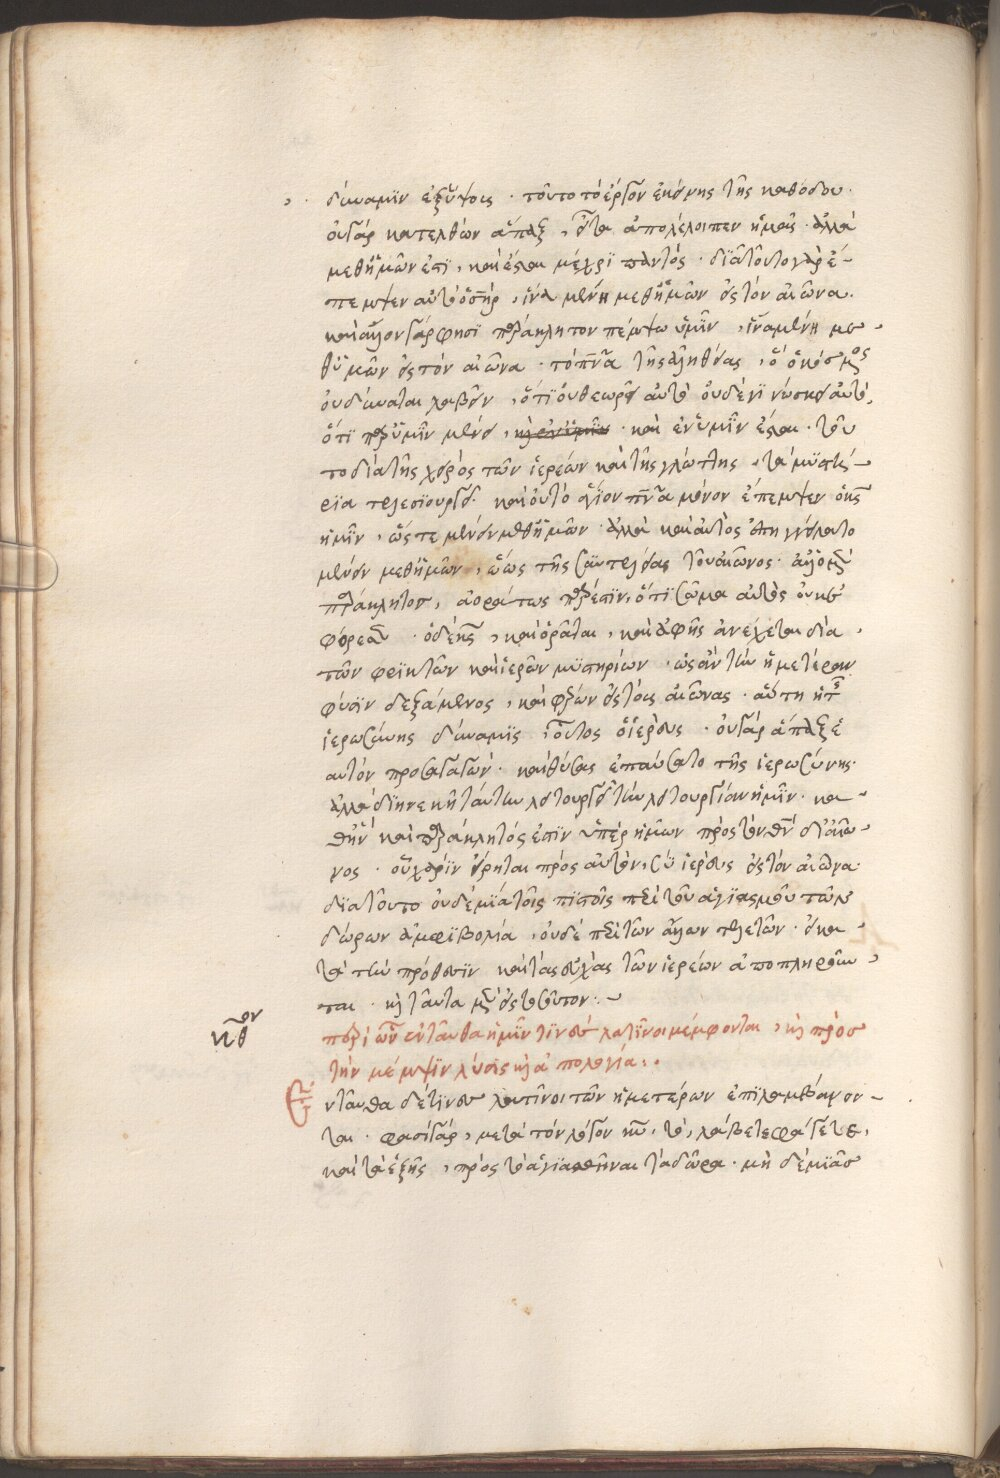 δύναμιν ἐξ ὕψους · τοῦτο τὸ ἔργον ἐκείνης τῆς καθόδου ·
οὐ γὰρ κατελθὼν ἅπαξ, εἶτα ἀπολέλοιπεν ἡμᾶς · ἀλλὰ
μεθ' ἡμῶν ἐστι, καὶ ἔσται μέχρι παντός · διὰ τοῦτο γὰρ ἔ-
πεμψεν αὐτὸ ὁ σ̅η̅ρ, ἵνα μένη μεθ' ἡμῶν εἰς τὸν αἰῶνα.
καὶ ἄλλον γάρ φησι παράκλητον πέμψω ὑμῖν, ἵνα μένη με
θ' ὑμῶν εἰς τὸν αἰῶνα · τὸ π̅ν̅α τῆς ἀληθείας, ὃ ὁ κόσμος
οὐ δύναται λαβεῖν, ὅτι οὐ θεωρεῖ αὐτὸ οὐδὲ γινώσκει αὐτό,
ὅτι παρ' ὑμῖν μένει, κ̀ ἐν ὑμῖν · καὶ ἐν ὑμῖν ἔσται · τοῦ
το διὰ τῆς χειρὸς τῶν ἱερέων καὶ τῆς γλώττης τὰ μυστή-
ρια τελεσιουργεῖ · καὶ οὐ τὸ ἅγιον π̅ν̅α μόνον ἔπεμψεν ὁ κ̅ς
ἡμῖν, ὥστε μένειν μεθ' ἡμῶν · ἀλλὰ καὶ αὐτὸς ἐπηγγείλατο
μένειν μεθ' ἡμῶν, ἕως τῆς συντελείας τοῦ αἰῶνος · ἀλλ' ὁ μὲν
παράκλητος, ἀοράτως πάρεστιν, ὅτι σῶμα αὐτὸς οὐκ ἐ
φόρεσεν · ὁ δὲ κ̅ς, καὶ ὁρᾶται, καὶ ἁφῆς ἀνέχεται διὰ
τῶν φρικτῶν καὶ ἱερῶν μυστηρίων · ὡς ἂν τὴν ἡμετέραν
φύσιν δεξάμενος, καὶ φέρων εἰς τοὺς αἰῶνας · αὕτη ἡ τῆς
ἱερωσύνης δύναμις, οὗτος ὁ ἱερεύς · οὐ γὰρ ἅπαξ ἑ
αυτὸν προσαγαγὼν · καὶ θύσας ἐπαύσατο τῆς ἱερωσύνης ·
ἀλλὰ διηνεκῆ ταύτην λειτουργεῖ τὴν λειτουργίαν ἡμῖν · κα
θ' ἣν καὶ παράκλητός ἐστιν ὑπὲρ ἡμῶν πρὸς τὸν θ̅ν δι' αἰῶ
νος · οὗ χάριν εἴρηται πρὸς αὐτὸν, σὺ ἱερεὺς εἰς τὸν αἰῶνα ·
διὰ τοῦτο οὐδεμία τοῖς πιστοῖς περὶ τοῦ ἁγιασμοῦ τῶν
δώρων ἀμφιβολία, οὐδὲ περὶ τῶν ἄλλων τελετῶν · εἰ κα
τὰ τὴν πρόθεσιν καὶ τὰς εὐχὰς τῶν ἱερέων ἀποπληροῦν
ται · κ̀ ταῦτα μὲν εἰς τοσοῦτον :-
κθ̅ον
περὶ ὧν ἐνταῦθα ἡμῖν τινὲς λατῖνοι μέμφονται, κ̀ πρὸς
τὴν μέμψιν λύσις κ̀ ἀπολογία :.
Ἐνταῦθα δέ τινες λατῖνοι τῶν ἡμετέρων ἐπιλαμβάνον-
ται · φασὶ γάρ, μετὰ τὸν λόγον κ̅υ, τὸ, λάβετε φάγετε,
καὶ τὰ ἑξῆς, πρὸς τὸ ἁγιασθῆναι τὰ δῶρα · μὴ δεμιᾶς